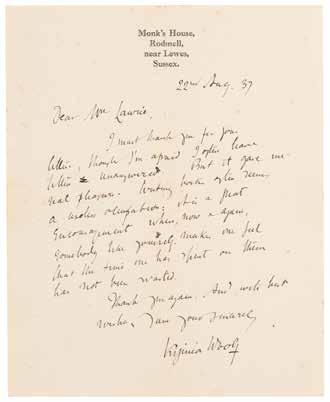 Monk's House,
Rodmell,
near Lewes,
Sussex.
22nd Aug. 37
Dear Mr Lawrie,
I must thank you for your
letter, though I'm afraid I often leave
letters unanswered. But it gave me
real pleasure. Writing books often seems
a useless occupation; it is a great
encouragement when, now & again,
somebody like yourself makes one feel
that the time one has spent on them
has not been wasted.
Thank you again. And with best
wishes, I am yours sincerely
Virginia Woolf